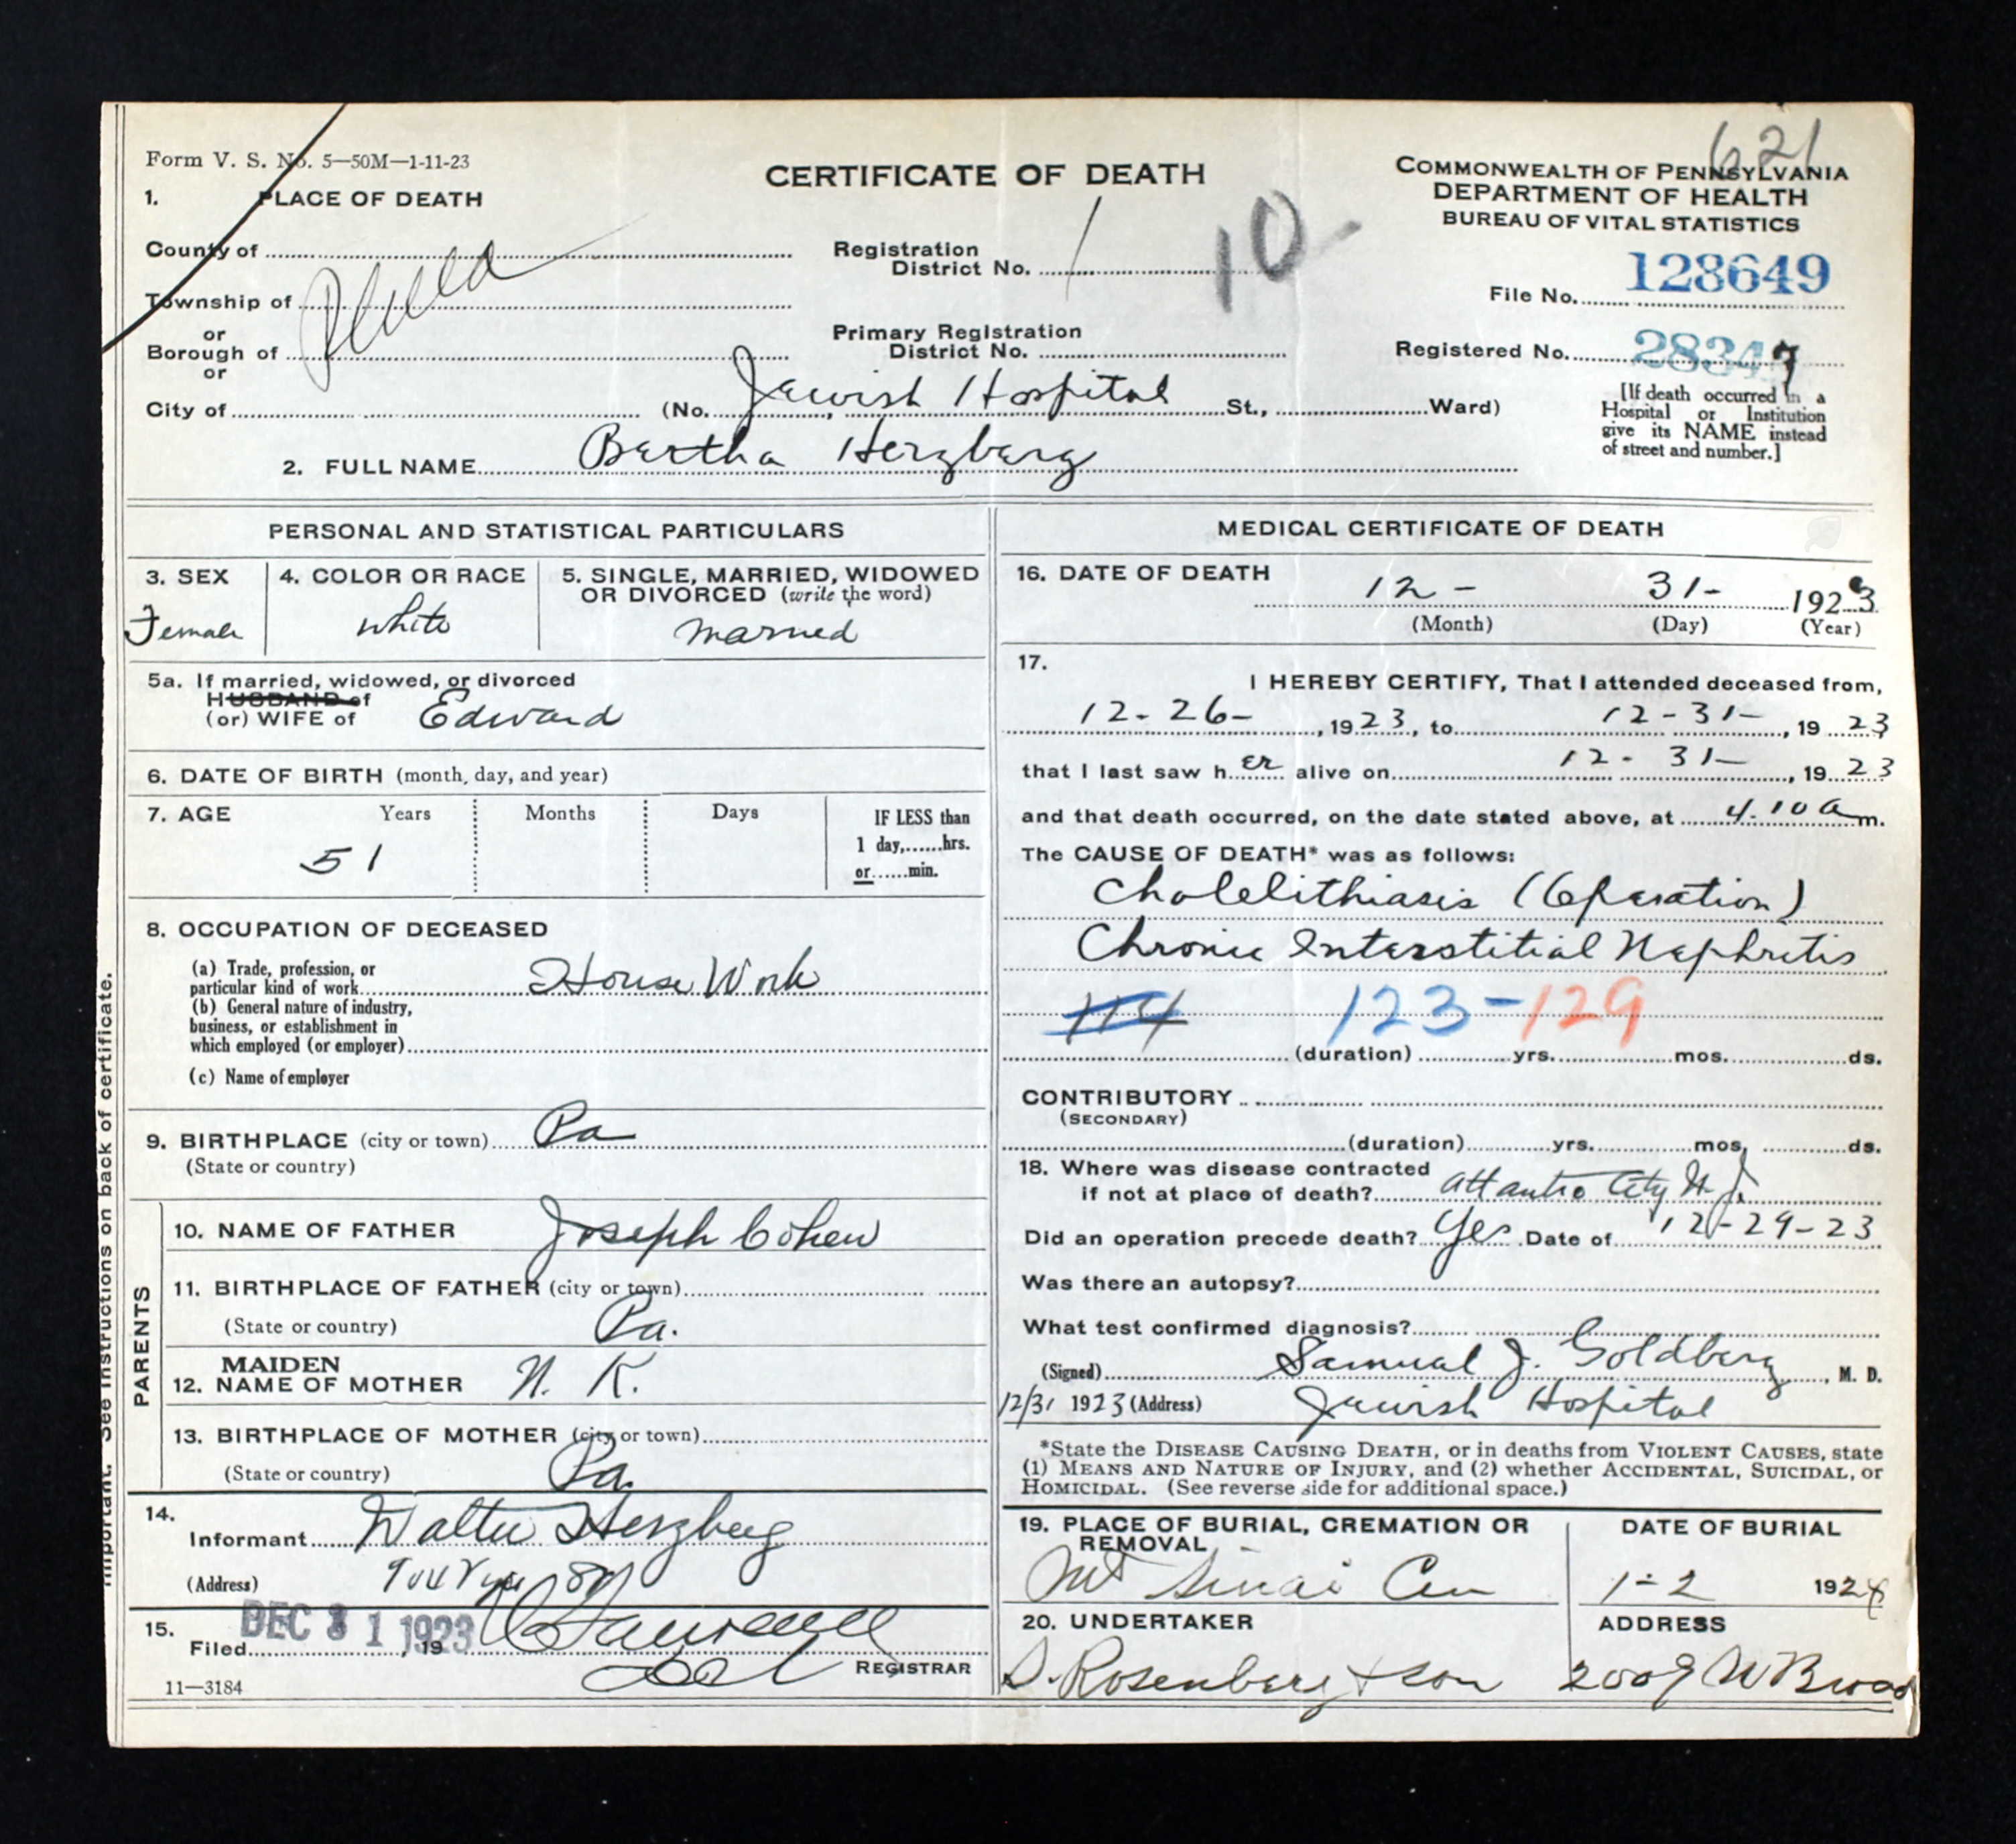 621
Form V. S. No. 5—50M—1-11-23
CERTIFICATE OF DEATH
COMMONWEALTH OF PENNSYLVANIA
DEPARTMENT OF HEALTH
BUREAU OF VITAL STATISTICS
1. PLACE OF DEATH
County of
Township of
or
Borough of
or
City of
Phila
Registration
District No. 1
10
Primary Registration
District No.
File No. 128649
Registered No. 28347
(No. Jewish Hospital St., Ward)
[If death occurred in a
Hospital or Institution
give its NAME instead
of street and number.]
2. FULL NAME Bertha Herzberg
PERSONAL AND STATISTICAL PARTICULARS
3. SEX
Female
4. COLOR OR RACE
White
5. SINGLE, MARRIED, WIDOWED
OR DIVORCED (write the word)
Married
5a. If married, widowed, or divorced
HUSBAND of
(or) WIFE of Edward
6. DATE OF BIRTH (month, day, and year)
7. AGE Years Months Days
51
IF LESS than
1 day,......hrs.
or......min.
8. OCCUPATION OF DECEASED
(a) Trade, profession, or
particular kind of work House Work
(b) General nature of industry,
business, or establishment in
which employed (or employer)
(c) Name of employer
9. BIRTHPLACE (city or town) Pa
(State or country)
PARENTS
10. NAME OF FATHER Joseph Cohen
11. BIRTHPLACE OF FATHER (city or town)
(State or country) Pa.
MAIDEN
12. NAME OF MOTHER N. K.
13. BIRTHPLACE OF MOTHER (city or town)
(State or country) Pa.
14.
Informant Walter Herzberg
(Address)
15.
Filed DEC 31 1923, 19
REGISTRAR
11—3184
important. See instructions on back of certificate.
MEDICAL CERTIFICATE OF DEATH
16. DATE OF DEATH
12 - 31- 1923
(Month) (Day) (Year)
17.
I HEREBY CERTIFY, That I attended deceased from,
12-26-, 1923, to 12-31-, 1923
that I last saw her alive on 12-31-, 1923
and that death occurred, on the date stated above, at 4.10 a m.
The CAUSE OF DEATH* was as follows:
Cholelithiasis (Operation)
Chronic Interstitial Nephritis
114 123-129
(duration) yrs. mos. ds.
CONTRIBUTORY
(SECONDARY)
(duration) yrs. mos. ds.
18. Where was disease contracted
if not at place of death? Atlantic City N. J.
Did an operation precede death? Yes Date of 12-29-23
Was there an autopsy?
What test confirmed diagnosis?
(Signed) Samuel J. Goldberg, M. D.
12/31 1923 (Address) Jewish Hospital
*State the DISEASE CAUSING DEATH, or in deaths from VIOLENT CAUSES, state
(1) MEANS AND NATURE OF INJURY, and (2) whether ACCIDENTAL, SUICIDAL, or
HOMICIDAL. (See reverse side for additional space.)
19. PLACE OF BURIAL, CREMATION OR
REMOVAL
Mt Sinai Cem
DATE OF BURIAL
1-2 1924
20. UNDERTAKER
S. Rosenberg & son
ADDRESS
2009 N Broad